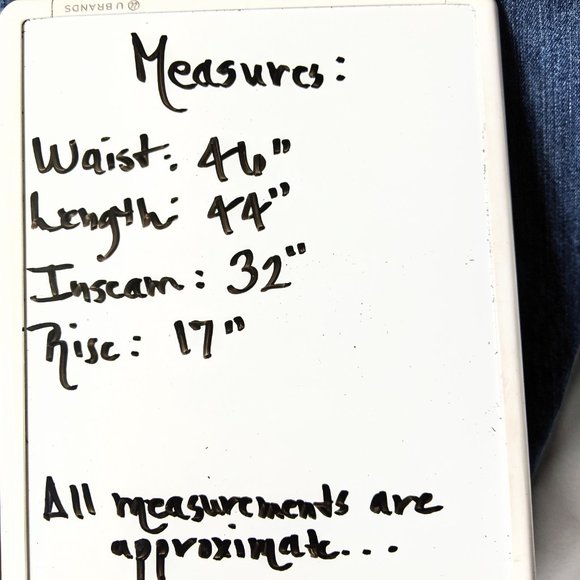 U BRANDS
Measures:
Waist: 46"
Length: 44"
Inseam: 32"
Rise: 17"
All measurements are
approximate...